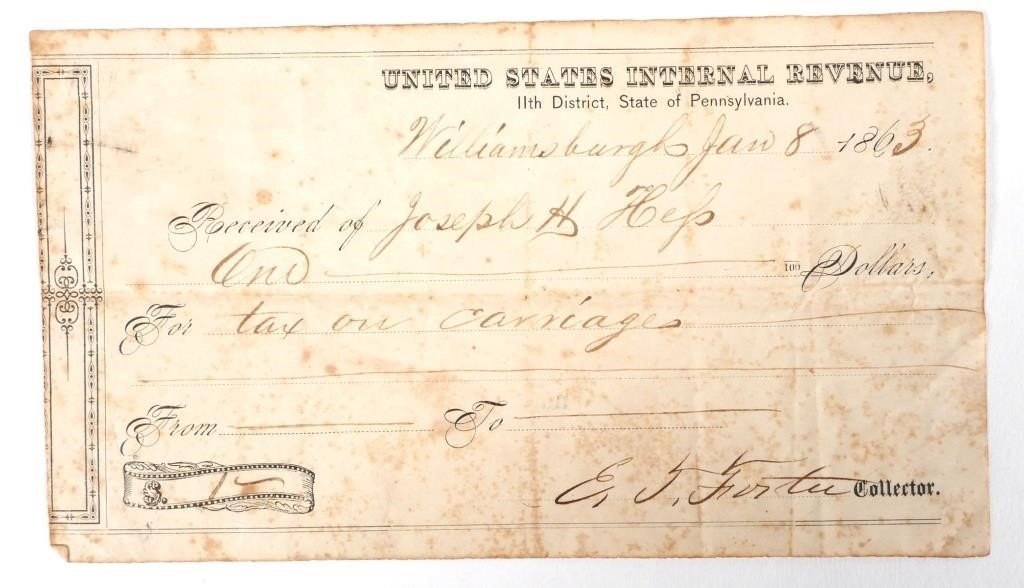 UNITED STATES INTERNAL REVENUE,
11th District, State of Pennsylvania.
Williamsburgh Jan 8 1863.
Received of Joseph H Hess
One 100 Dollars,
For tax on carriages
From To
$. 1-
E. F. Foster Collector.